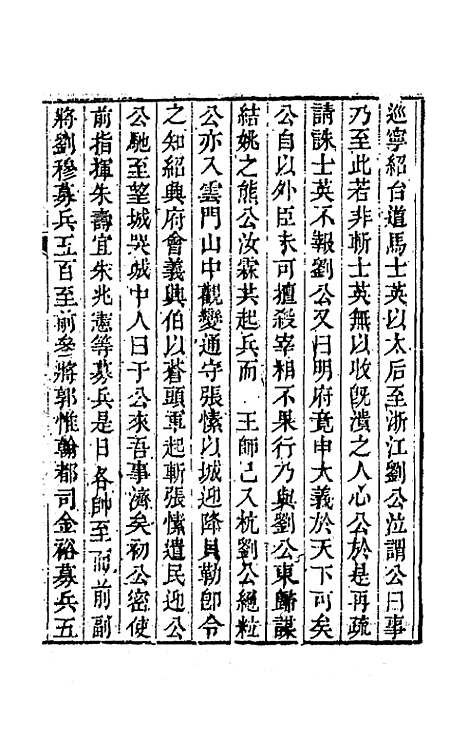 巡寧紹台道馬士英以太后至浙江劉公泣謂公曰事
乃至此若非斬士英無以收旣潰之人心公於是再疏
請誅士英不報劉公又曰明府竟申大義於天下可矣
公自以外臣未可擅殺宰相不果行乃與劉公東歸謀
結姚之熊公汝霖共起兵而 王師已入杭劉公絕粒
公亦入雲門山中觀變通守張愫以城迎降貝勒卽令
之知紹興府會義興伯以蒼頭軍起斬張愫遣民迎公
公馳至望城哭城中人曰于公來吾事濟矣初公密使
前指揮朱壽宜朱兆憲等募兵是日各帥至而前副
將劉穆募兵五百至前參將郭惟翰都司金裕募兵五